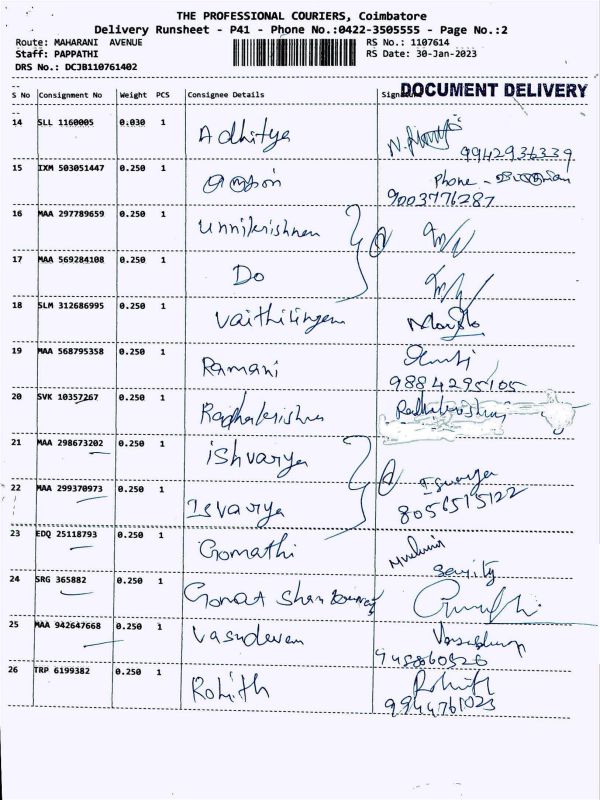 THE PROFESSIONAL COURIERS, Coimbatore
Delivery Runsheet - P41 - Phone No.:0422-3505555 - Page No.:2
Route: MAHARANI AVENUE RS No.: 1107614
Staff: PAPPATHI RS Date: 30-Jan-2023
DRS No.: DCJB110761402
DOCUMENT DELIVERY
S No Consignment No Weight PCS Consignee Details Signature
14 SLL 1160005 0.030 1 Adhitya
9942936339
15 IXM 503051447 0.250 1
Phone -
9003776287
16 MAA 297789659 0.250 1 Unnikrishnan
17 MAA 569284108 0.250 1 Do
18 SLM 312686995 0.250 1 Vaithilingam
19 MAA 568795358 0.250 1 Ramani
9884295105
20 SVK 10357267 0.250 1 Radhakrishna Radhakrishnan
21 MAA 298673202 0.250 1 ishvarya
22 MAA 299370973 0.250 1 Isvarya Iswarya
8056515122
23 EDQ 25118793 0.250 1 Gomathi
24 SRG 365882 0.250 1
25 MAA 942647668 0.250 1 Vasudevan
26 TRP 6199382 0.250 1 Rohith Rohith
9944761023